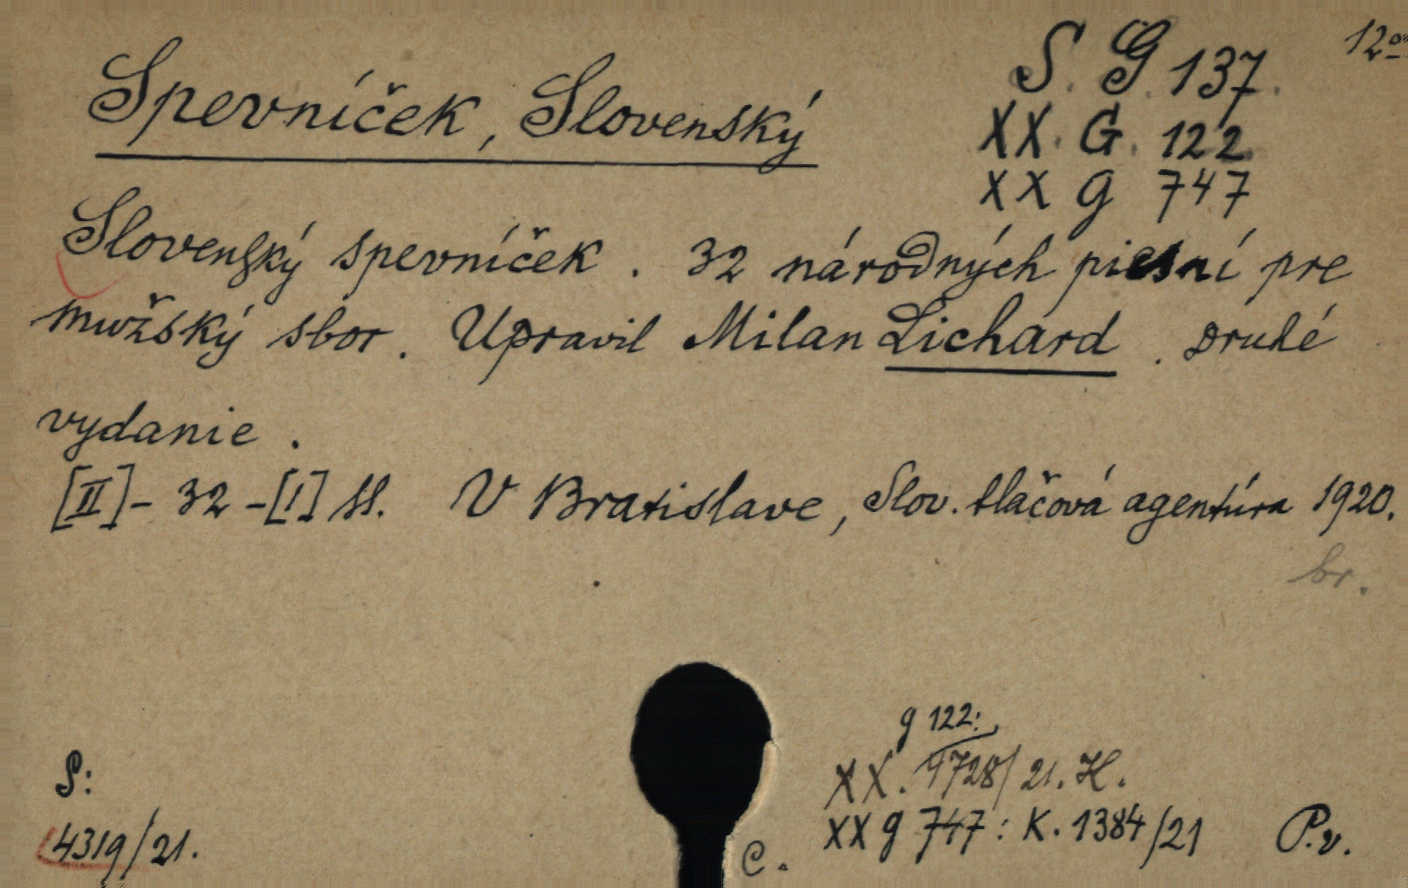 12°
S. G. 137.
Spevníček, Slovenský
XX. G. 122
XX g 747
Slovenský spevníček. 32 národných piesní pre
mužský sbor. Upravil Milan Lichard. Druhé
vydanie.
[II]-32-[1] s. V Bratislave, Slov. tlačová agentúra 1920.
br.
g 122:
S:
XX. 9728/21. H.
4319/21.
C.
XX g 747: K. 1384/21
P.v.